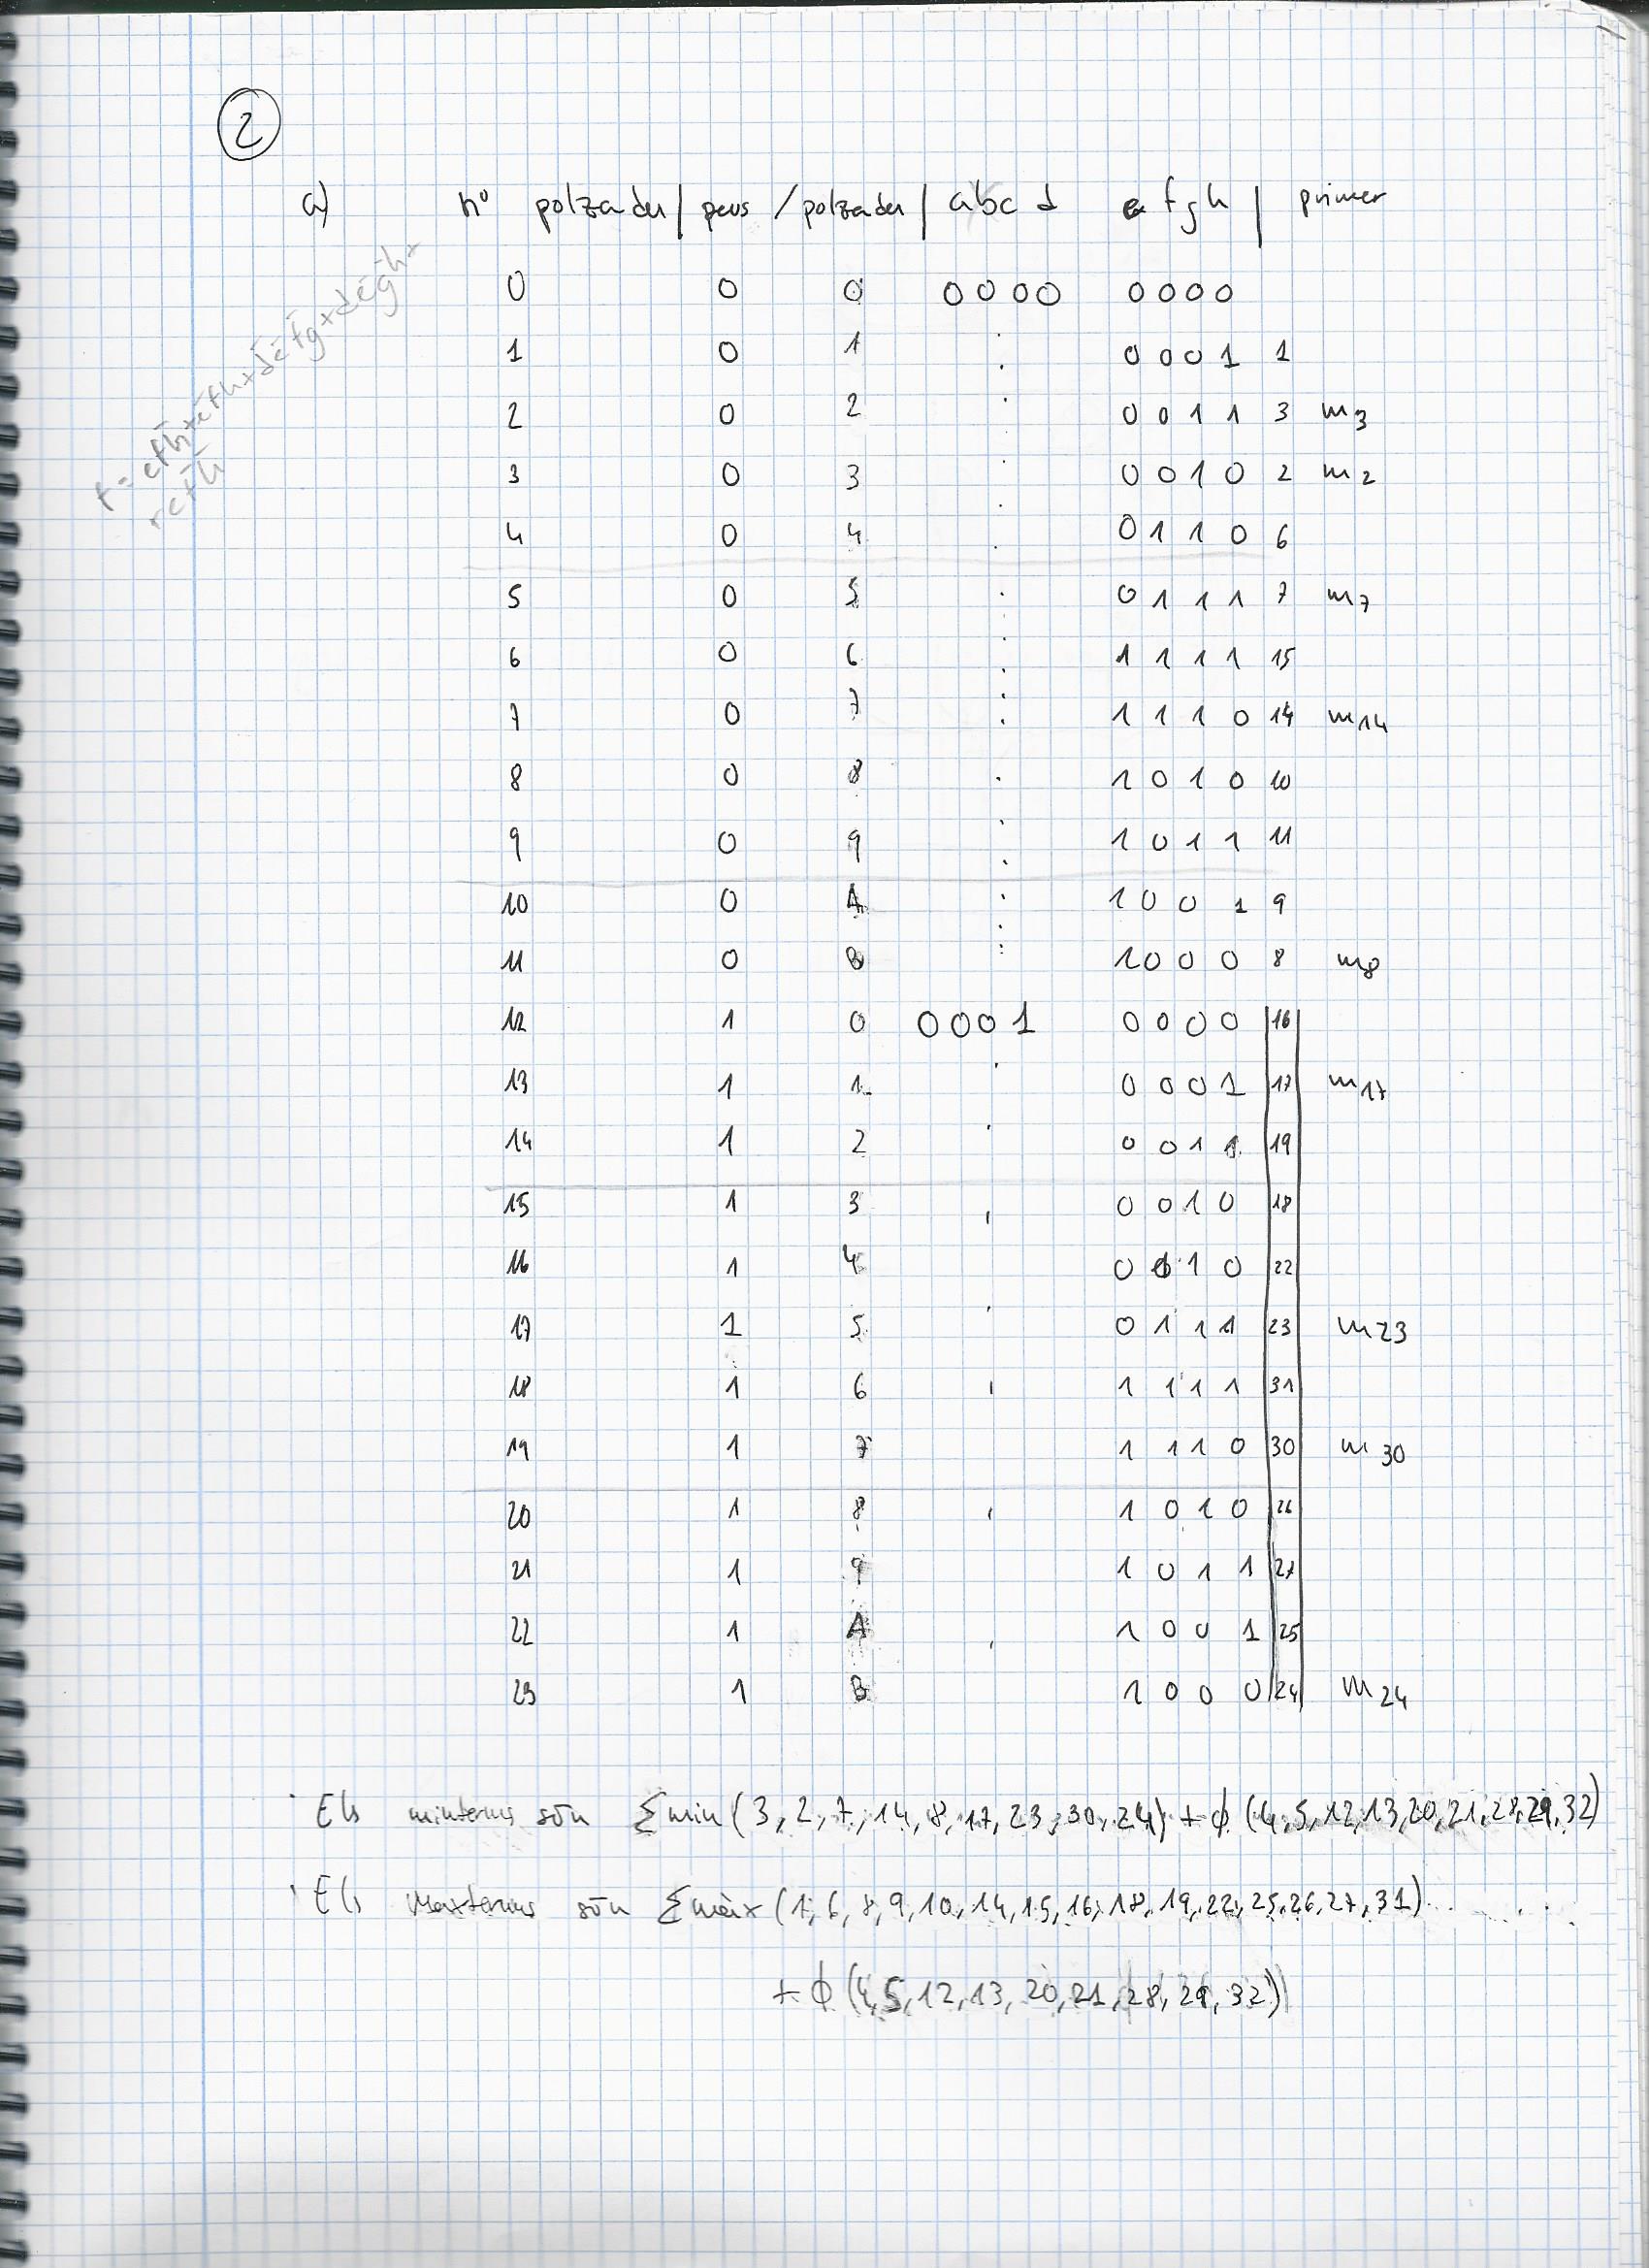 2
a) nº polzades | peus / polzades | abc d e f g h | primer
0 0 0 0000 0000
1 0 1 0001 1
2 0 2 0011 3 m3
3 0 3 0010 2 m2
4 0 4 0110 6
5 0 5 0111 7 m7
6 0 6 1111 15
7 0 7 1110 14 m14
8 0 8 1010 10
9 0 9 1011 11
10 0 A 1001 9
11 0 B 1000 8 m8
12 1 0 0001 0000 16
13 1 1 0001 17 m17
14 1 2 0011 19
15 1 3 0010 18
16 1 4 0110 22
17 1 5 0111 23 m23
18 1 6 1111 31
19 1 7 1110 30 m30
20 1 8 1010 26
21 1 9 1011 27
22 1 A 1001 25
23 1 B 1000 24 m24
· Els minterms són Σmin(3,2,7,14,8,17,23,30,24) + ϕ(4,5,12,13,20,21,28,29,32)
· Els Maxterms són Σmàx(1,6,8,9,10,14,15,16,18,19,22,25,26,27,31)
+ ϕ(4,5,12,13,20,21,28,29,32)